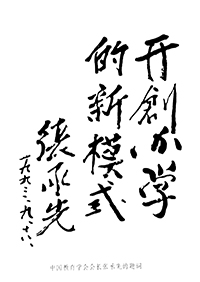 开創办学
的新模式
張承先
一九九三.九.十六.
中国教育学会会长张承先的题词